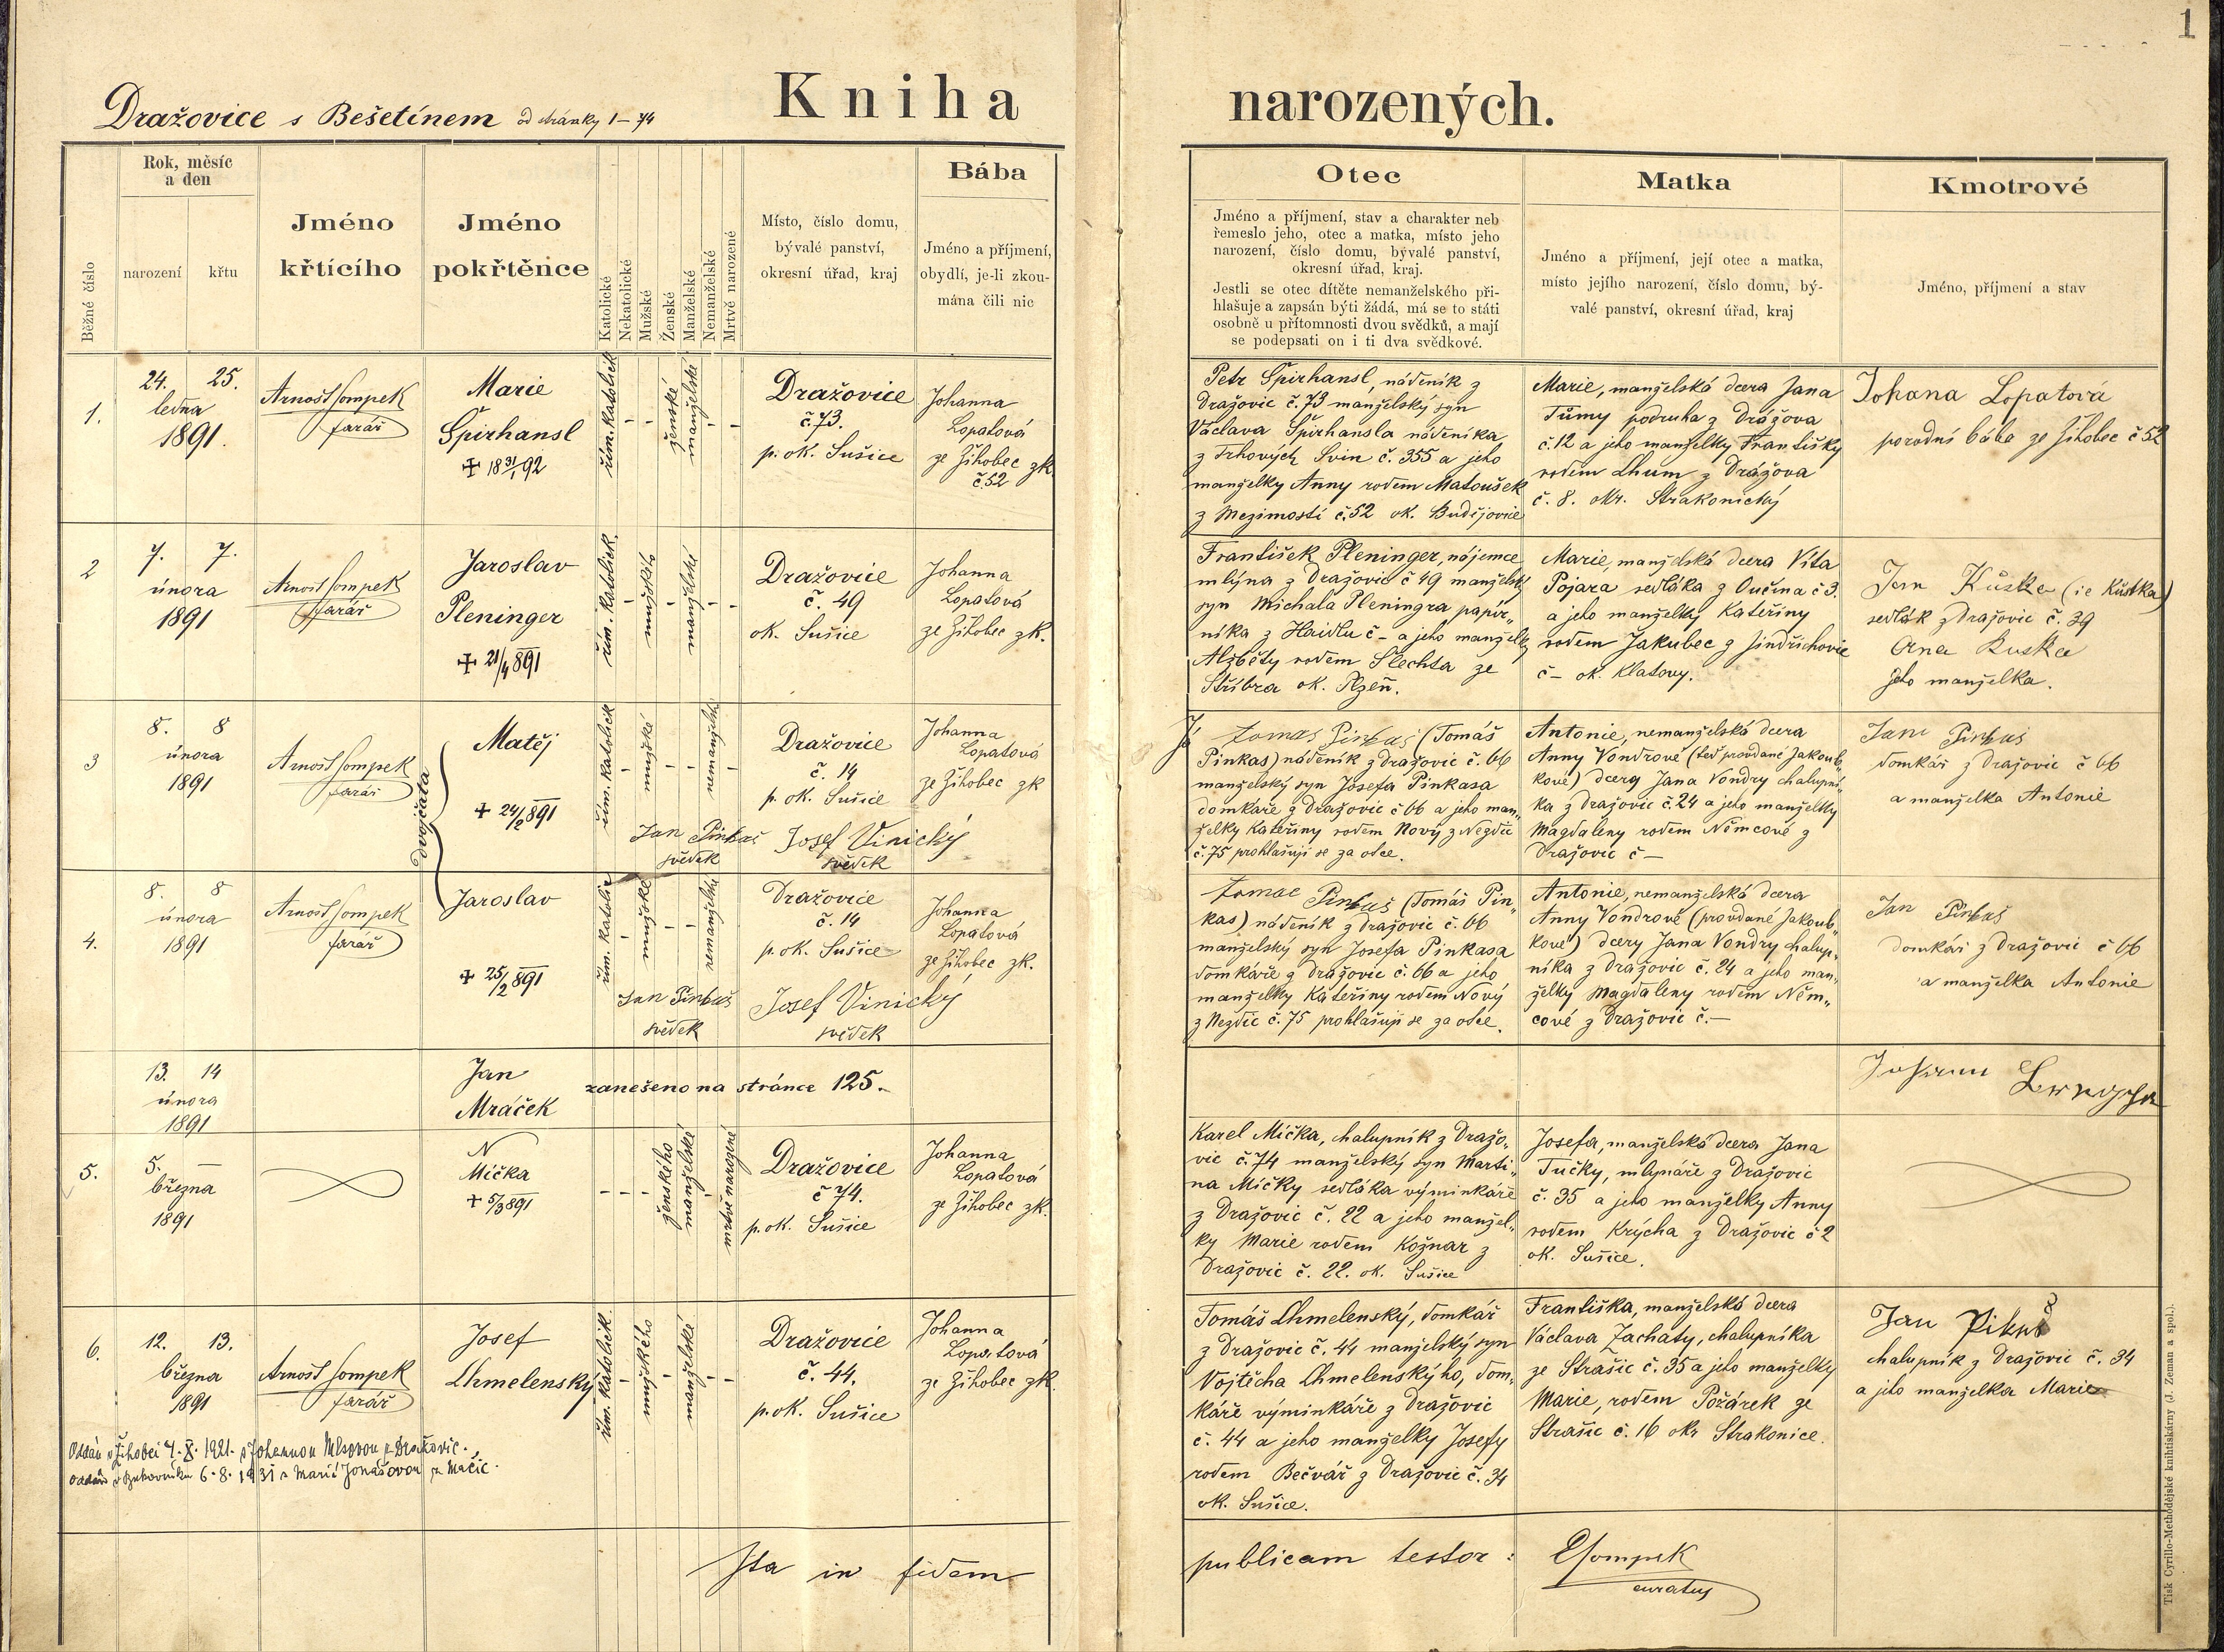 1
Dražovice s Bešetínem od stránky 1–74
Kniha narozených.
Běžné číslo
Rok, měsíc
a den
narození
křtu
Jméno
křtícího
Jméno
pokřtěnce
Katolické
Nekatolické
Mužské
Ženské
Manželské
Nemanželské
Mrtvě narozené
Místo, číslo domu,
bývalé panství,
okresní úřad, kraj
Bába
Jméno a příjmení,
obydlí, je-li zkou-
mána čili nic
Otec
Jméno a příjmení, stav a charakter neb
řemeslo jeho, otec a matka, místo jeho
narození, číslo domu, bývalé panství,
okresní úřad, kraj.
Jestli se otec dítěte nemanželského při-
hlašuje a zapsán býti žádá, má se to státi
osobně u přítomnosti dvou svědků, a mají
se podepsati on i ti dva svědkové.
Matka
Jméno a příjmení, její otec a matka,
místo jejího narození, číslo domu, bý-
valé panství, okresní úřad, kraj
Kmotrové
Jméno, příjmení a stav
1.
24. 25.
ledna
1891.
Arnošt Sompek
farář
Marie
Špirhansl
+ 18 31/1 92
řím. katolick
ženské
manželské
Dražovice
č. 73.
p. ok. Sušice
Johanna
Lopatová
ze Žihobec zk.
č. 52
Petr Špirhansl, nádeník z
Dražovic č. 73 manželský syn
Václava Špirhansla nádeníka
z Trhových Svin č. 355 a jeho
manželky Anny rodem Matoušek
z Mezimostí č. 52 ok. Budějovice
Marie, manželská dcera Jana
Tůmy podruha z Drážova
č. 12 a jeho manželky Františky
rodem Chum z Drážova
č. 8. okr. Strakonický
Johana Lopatová
porodní bába ze Žihobec č 52
2
7. 7.
února
1891
Arnošt Sompek
farář
Jaroslav
Pleninger
+ 21/4 891
řím. katolick.
mužského
manželské
Dražovice
č. 49
ok. Sušice
Johanna
Lopatová
ze Žihobec zk.
František Pleninger, nájemce
mlýna z Dražovic č 49 manželský
syn Michala Pleningra papír„
níka z Haidlu č – a jeho manželky
Alžběty rodem Šlechta ze
Stříbra ok. Plzeň.
Marie, manželská dcera Víta
Pojara sedláka z Vučina č 3.
a jeho manželky Kateřiny
rodem Jakubec z Jindřichovic
č – ok. Klatovy.
Jan Kůstka (ie Kůstka)
sedlák z Dražovic č. 39
Ana Kuska
jeho manželka.
3
8. 8
února
1891
Arnošt Sompek
farář
Matěj
+ 24/2 891
dvojčata
řím. katolick
mužské
nemanželské
Dražovice
č. 14
p. ok. Sušice
Johanna
Lopatová
ze Žihobec zk
Jan Pinkas
svědek
Josef Vinický
svědek
Já Tomas Pinkas (Tomáš
Pinkas) nádeník z Dražovic č. 66
manželský syn Josefa Pinkasa
domkáře z Dražovic č 66 a jeho man„
želky Kateřiny rodem Nový z Nezdic
č. 75 prohlašuji se za otce.
Antonie, nemanželská dcera
Anny Vondrové (teď provdané Jakoub„
kové) dcery Jana Vondry chalupní„
ka z Dražovic č. 24 a jeho manželky
Magdaleny rodem Němcové z
Dražovic č –
Jan Pinkas
domkář z Dražovic č 66
a manželka Antonie
4.
8. 8
února
1891
Arnošt Sompek
farář
Jaroslav
+ 25/2 891
řím. katolic
mužské
nemanželské
Dražovice
č. 14
p. ok. Sušice
Johanna
Lopatová
ze Žihobec zk.
Jan Pinkas
svědek
Josef Vinický
svědek
Tomas Pinkas (Tomáš Pin„
kas) nádeník z Dražovic č. 66
manželský syn Josefa Pinkasa
domkáře z Dražovic č. 66 a jeho
manželky Kateřiny rodem Nový
z Nezdic č. 75 prohlašuji se za otce.
Antonie, nemanželská dcera
Anny Vondrové (provdané Jakoub„
kové) dcery Jana Vondry chalup„
níka z Dražovic č. 24 a jeho man„
želky Magdaleny rodem Něm„
cové z Dražovic č. –
Jan Pinkas
domkář z Dražovic č 66
a manželka Antonie
13. 14
února
1891
Jan
Mráček
zanešeno na stránce 125.
Johann
5.
5. –
března
1891
N
Mička
+ 5/3 891
ženského
manželské
mrtvě narozené
Dražovice
č 74.
p. ok. Sušice
Johanna
Lopatová
ze Žihobec zk.
Karel Mička, chalupník z Dražo„
vic č. 74 manželský syn Marti„
na Mičky sedláka výminkáře
z Dražovic č. 22 a jeho manžel„
ky Marie rodem Kožnar z
Dražovic č. 22. ok. Sušice
Josefa, manželská dcera Jana
Tučky, mlynáře z Dražovic
č. 35 a jeho manželky Anny
rodem Krýcha z Dražovic č 2
ok. Sušice.
6.
12. 13.
března
1891
Arnošt Sompek
farář
Josef
Chmelenský
řím. katolick.
mužského
manželské
Dražovice
č. 44.
p. ok. Sušice
Johanna
Lopatová
ze Žihobec zk.
Tomáš Chmelenský, domkář
z Dražovic č. 44 manželský syn
Vojtěcha Chmelenskýho, dom„
káře výminkáře z Dražovic
č. 44 a jeho manželky Josefy
rodem Bečvář z Dražovic č. 34
ok. Sušice.
Františka, manželská dcera
Václava Zachaty, chalupníka
ze Strašic č. 35 a jeho manželky
Marie, rodem Požárek ze
Strašic č. 16 okr Strakonice.
Jan Pikus
chalupník z Dražovic č. 34
a jeho manželka Marie
Oddán v Žihobci 4. X. 1921. s Johannou z Dražovic.
oddán v 6. 8. 1931 s Marií Jonášovou z Mačic.
Ita in fidem publicam testor: ESompek
curatus
Tisk Cyrillo-Methodějské knihtiskárny (J. Zeman a spol.).